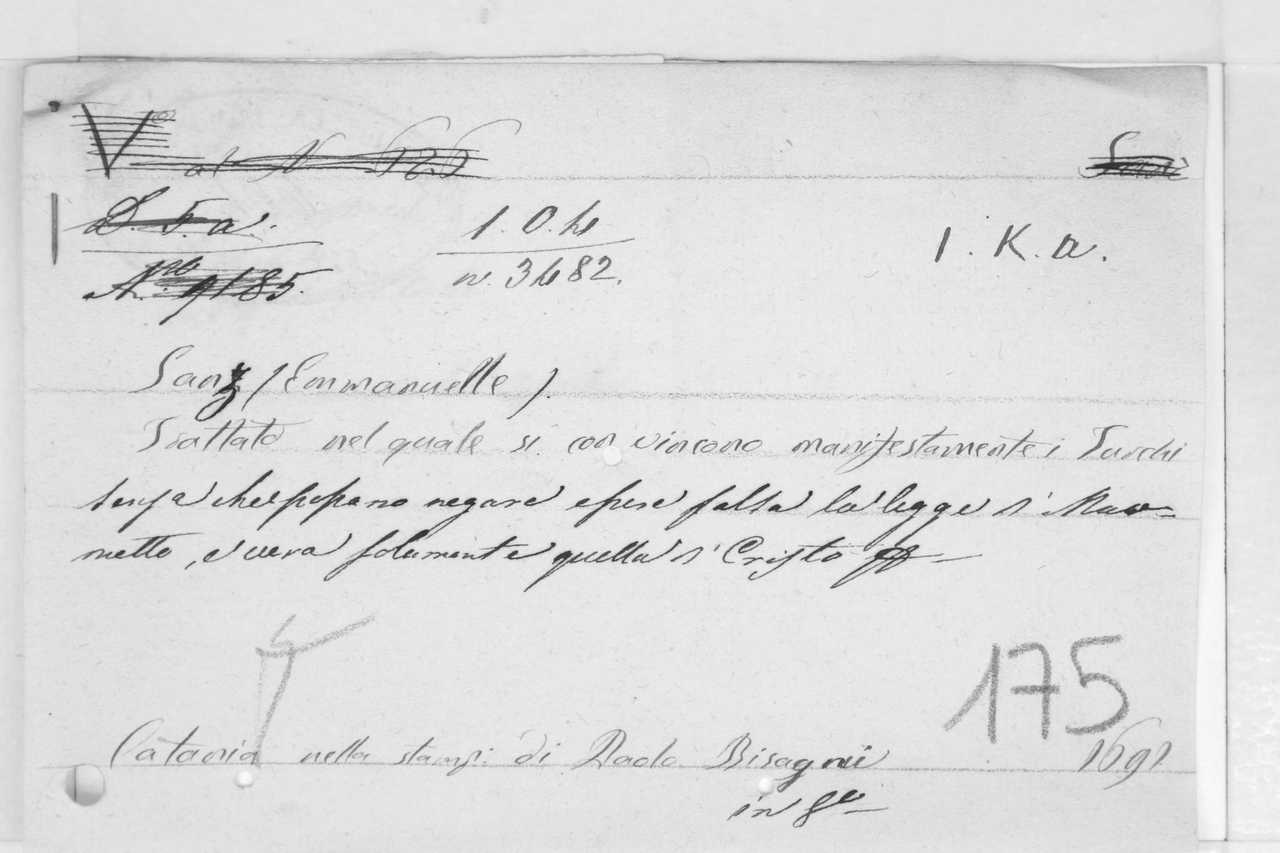 I. O. 4
I. K. a.
n. 3482.
Sanz (Emmanuelle).
Trattato nel quale si convincono manifestamente i Turchi
senza che possano negare essere falsa la legge di Mao-
metto, e vera solamente quella di Cristo
175
Catania nella stamp. di Paolo Bisagni 1691
in 8°